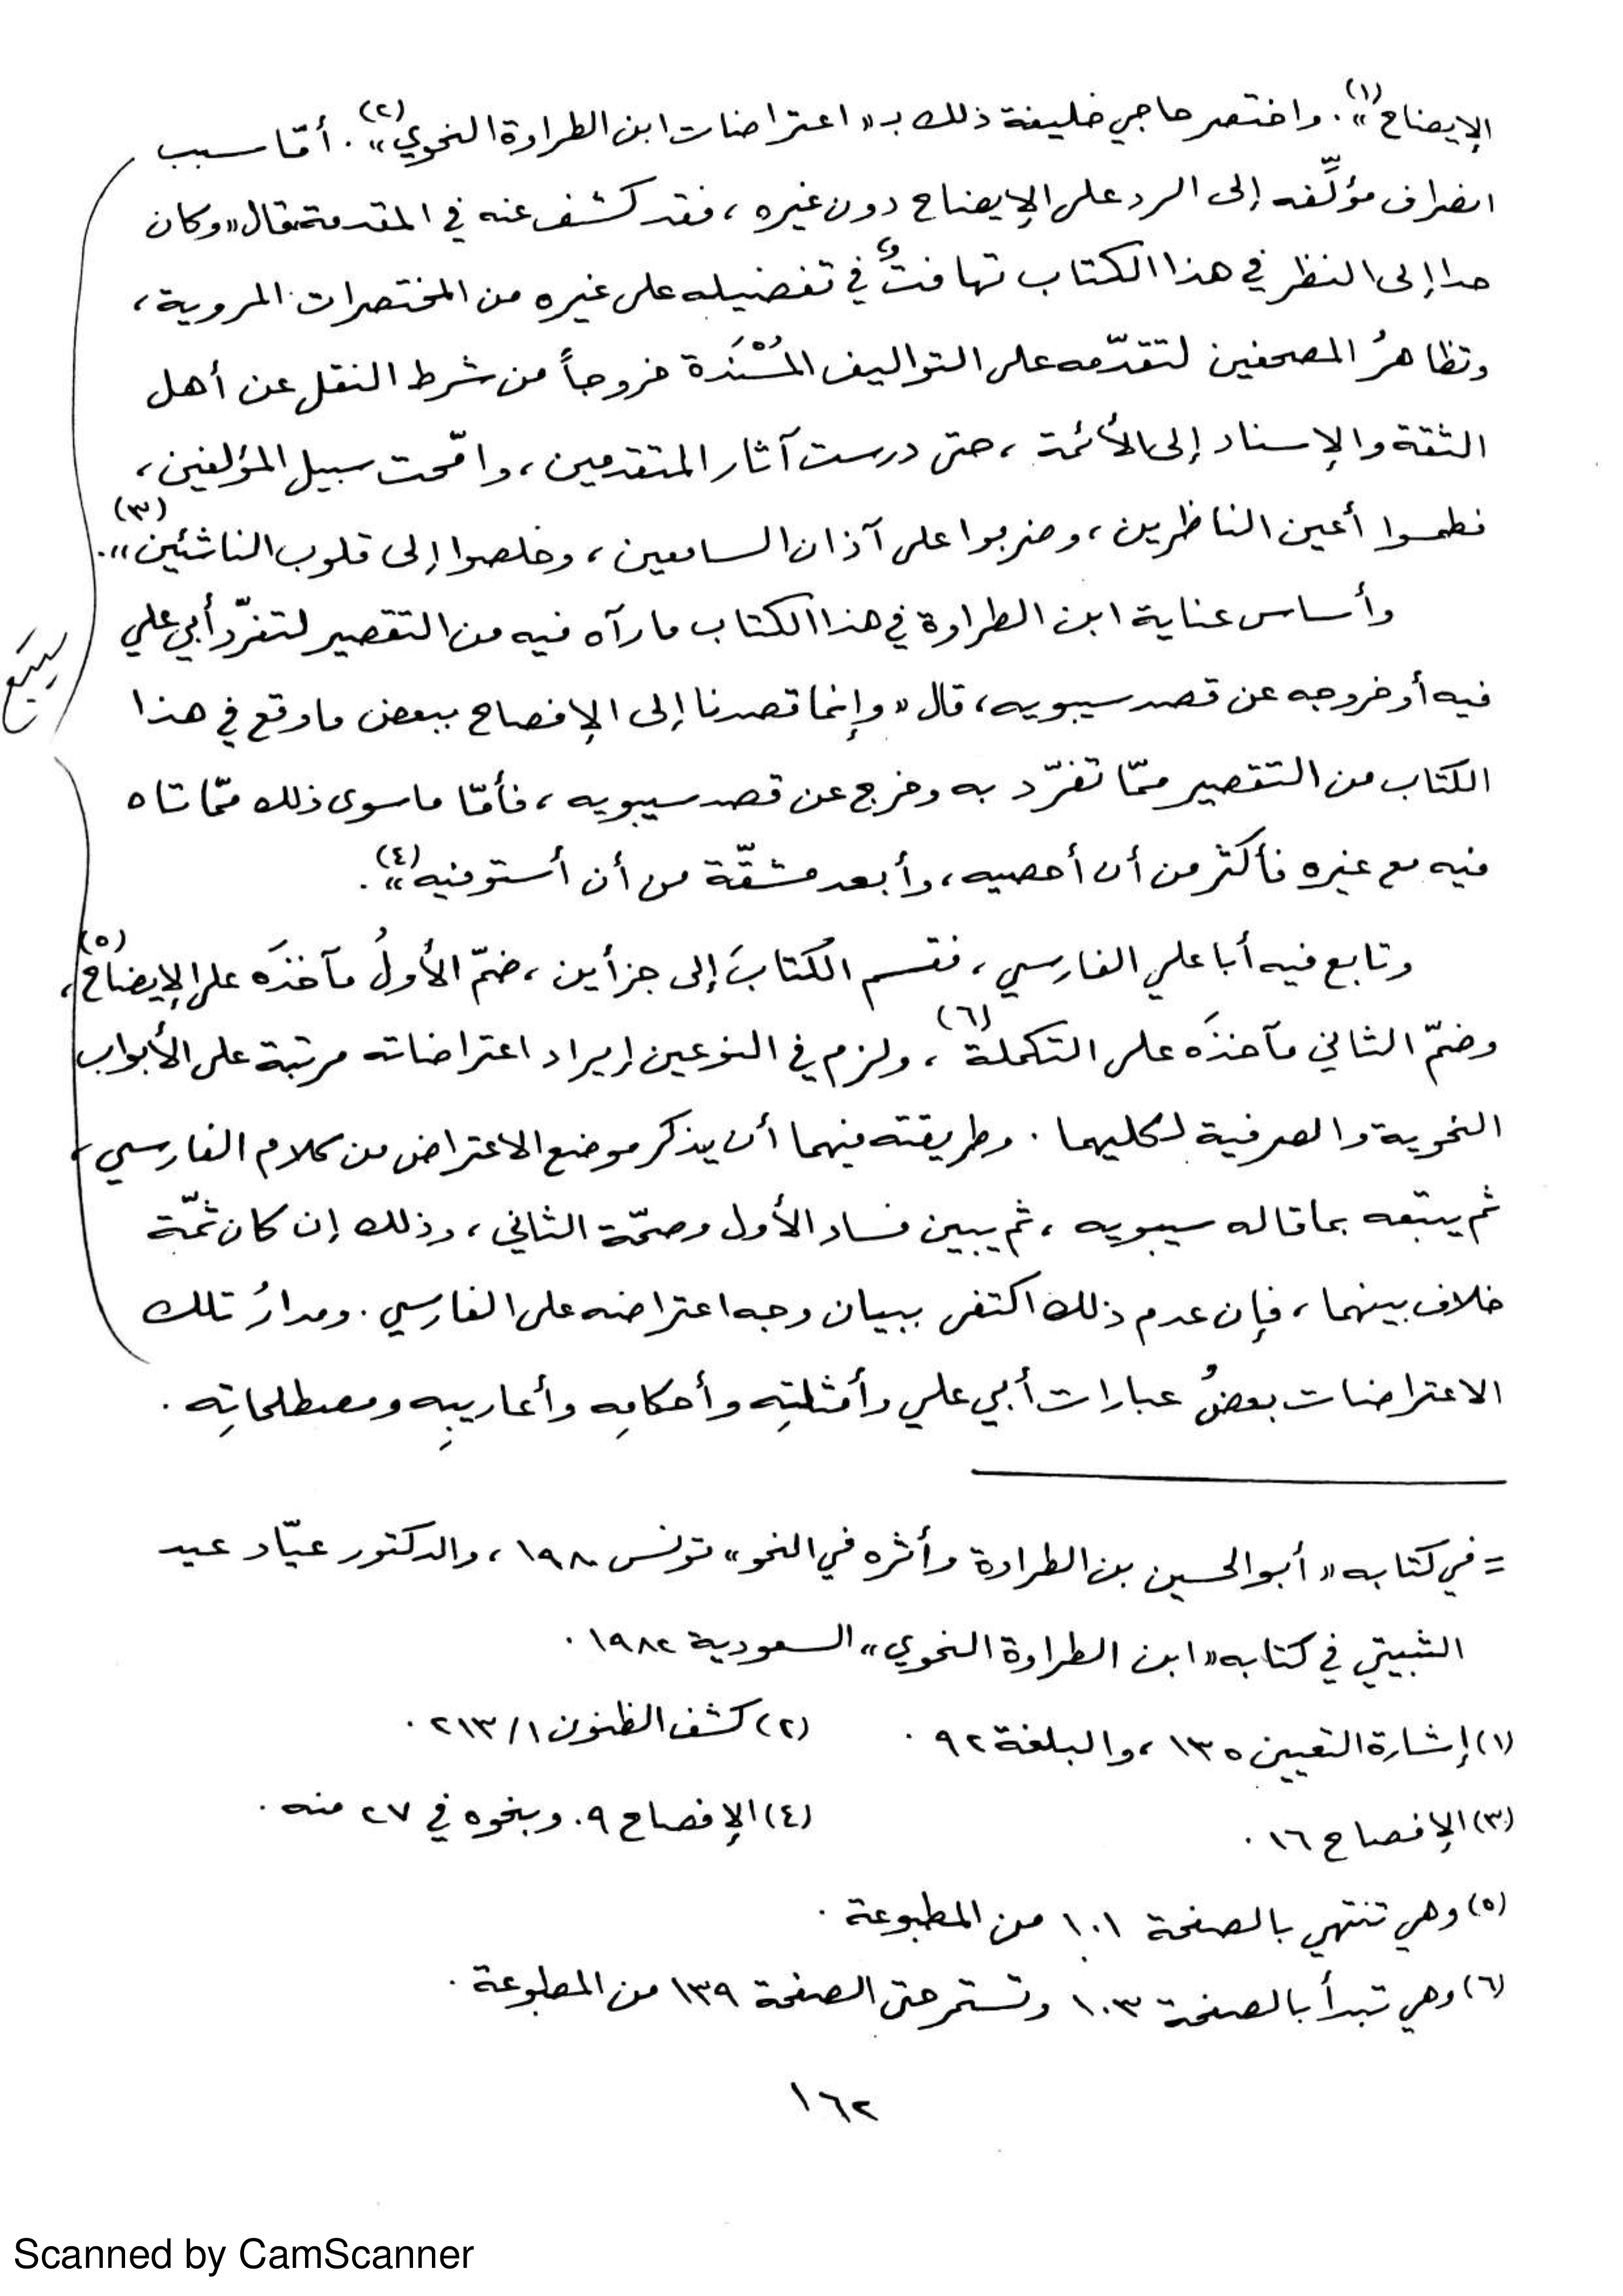 الإيضاح»(١). واختصر حاجي خليفة ذلك بـ «اعتراضات ابن الطراوة النحوي»(٢). أمّا سبب
انصراف مؤلِّفه إلى الرد على الإيضاح دون غيره، فقد كشف عنه في المقدمة، قال «وكان
حدا إلى النظر في هذا الكتاب تهافتٌ في تفضيله على غيره من المختصرات المروية،
وتظاهرُ المصحفين لتقدّمه على التواليف المُسْنَدة خروجاً من شرط النقل عن أهل
الثقة والإسناد إلى الأئمة، حتى درست آثار المتقدمين، وامّحت سبيل المؤلفين،
فطمسوا أعين الناظرين، وضربوا على آذان السامعين، وخلصوا إلى قلوب الناشئين»(٣).
وأساس عناية ابن الطراوة في هذا الكتاب ما رآه فيه من التقصير لتفرّد أبي علي
فيه أو خروجه عن قصد سيبويه، قال «وإنما قصدنا إلى الإفصاح ببعض ما وقع في هذا
الكتاب من التقصير ممّا تفرّد به وخرج عن قصد سيبويه، فأمّا ما سوى ذلك ممّا تاه
فيه مع غيره فأكثر من أن أحصيه، وأبعد مشقّة من أن أستوفيه»(٤).
وتابع فيه أبا علي الفارسي، فقسم الكتابَ إلى جزأين، ضمّ الأولُ مآخذَه على الإيضاح(٥)،
وضمّ الثاني مآخذَه على التكملة(٦)، ولزم في النوعين إيراد اعتراضاته مرتبة على الأبواب
النحوية والصرفية لكليهما. وطريقته فيهما أن يذكر موضع الاعتراض من كلام الفارسي،
ثم يتبعه بما قاله سيبويه، ثم يبين فساد الأول وصحّة الثاني، وذلك إن كان ثمّة
خلاف بينهما، فإن عدم ذلك اكتفى ببيان وجه اعتراضه على الفارسي. ومدارُ تلك
الاعتراضات بعضُ عبارات أبي علي وأمثلتِه وأحكامِه وأعاريبِه ومصطلحاتِه.
= في كتابه «أبو الحسين بن الطراوة وأثره في النحو» تونس ١٩٨٠، والدكتور عيّاد عيد
الثبيتي في كتابه «ابن الطراوة النحوي» السعودية ١٩٨٢.
(١) إشارة التعيين ١٣٥، والبلغة ٩٢. (٢) كشف الظنون ٢١٣/١.
(٣) الإفصاح ١٦. (٤) الإفصاح ٩. وبنحوه في ٢٧ منه.
(٥) وهي تنتهي بالصفحة ١٠١ من المطبوعة.
(٦) وهي تبدأ بالصفحة ١٠٣ وتستمر حتى الصفحة ١٣٩ من المطبوعة.
١٦٢
Scanned by CamScanner